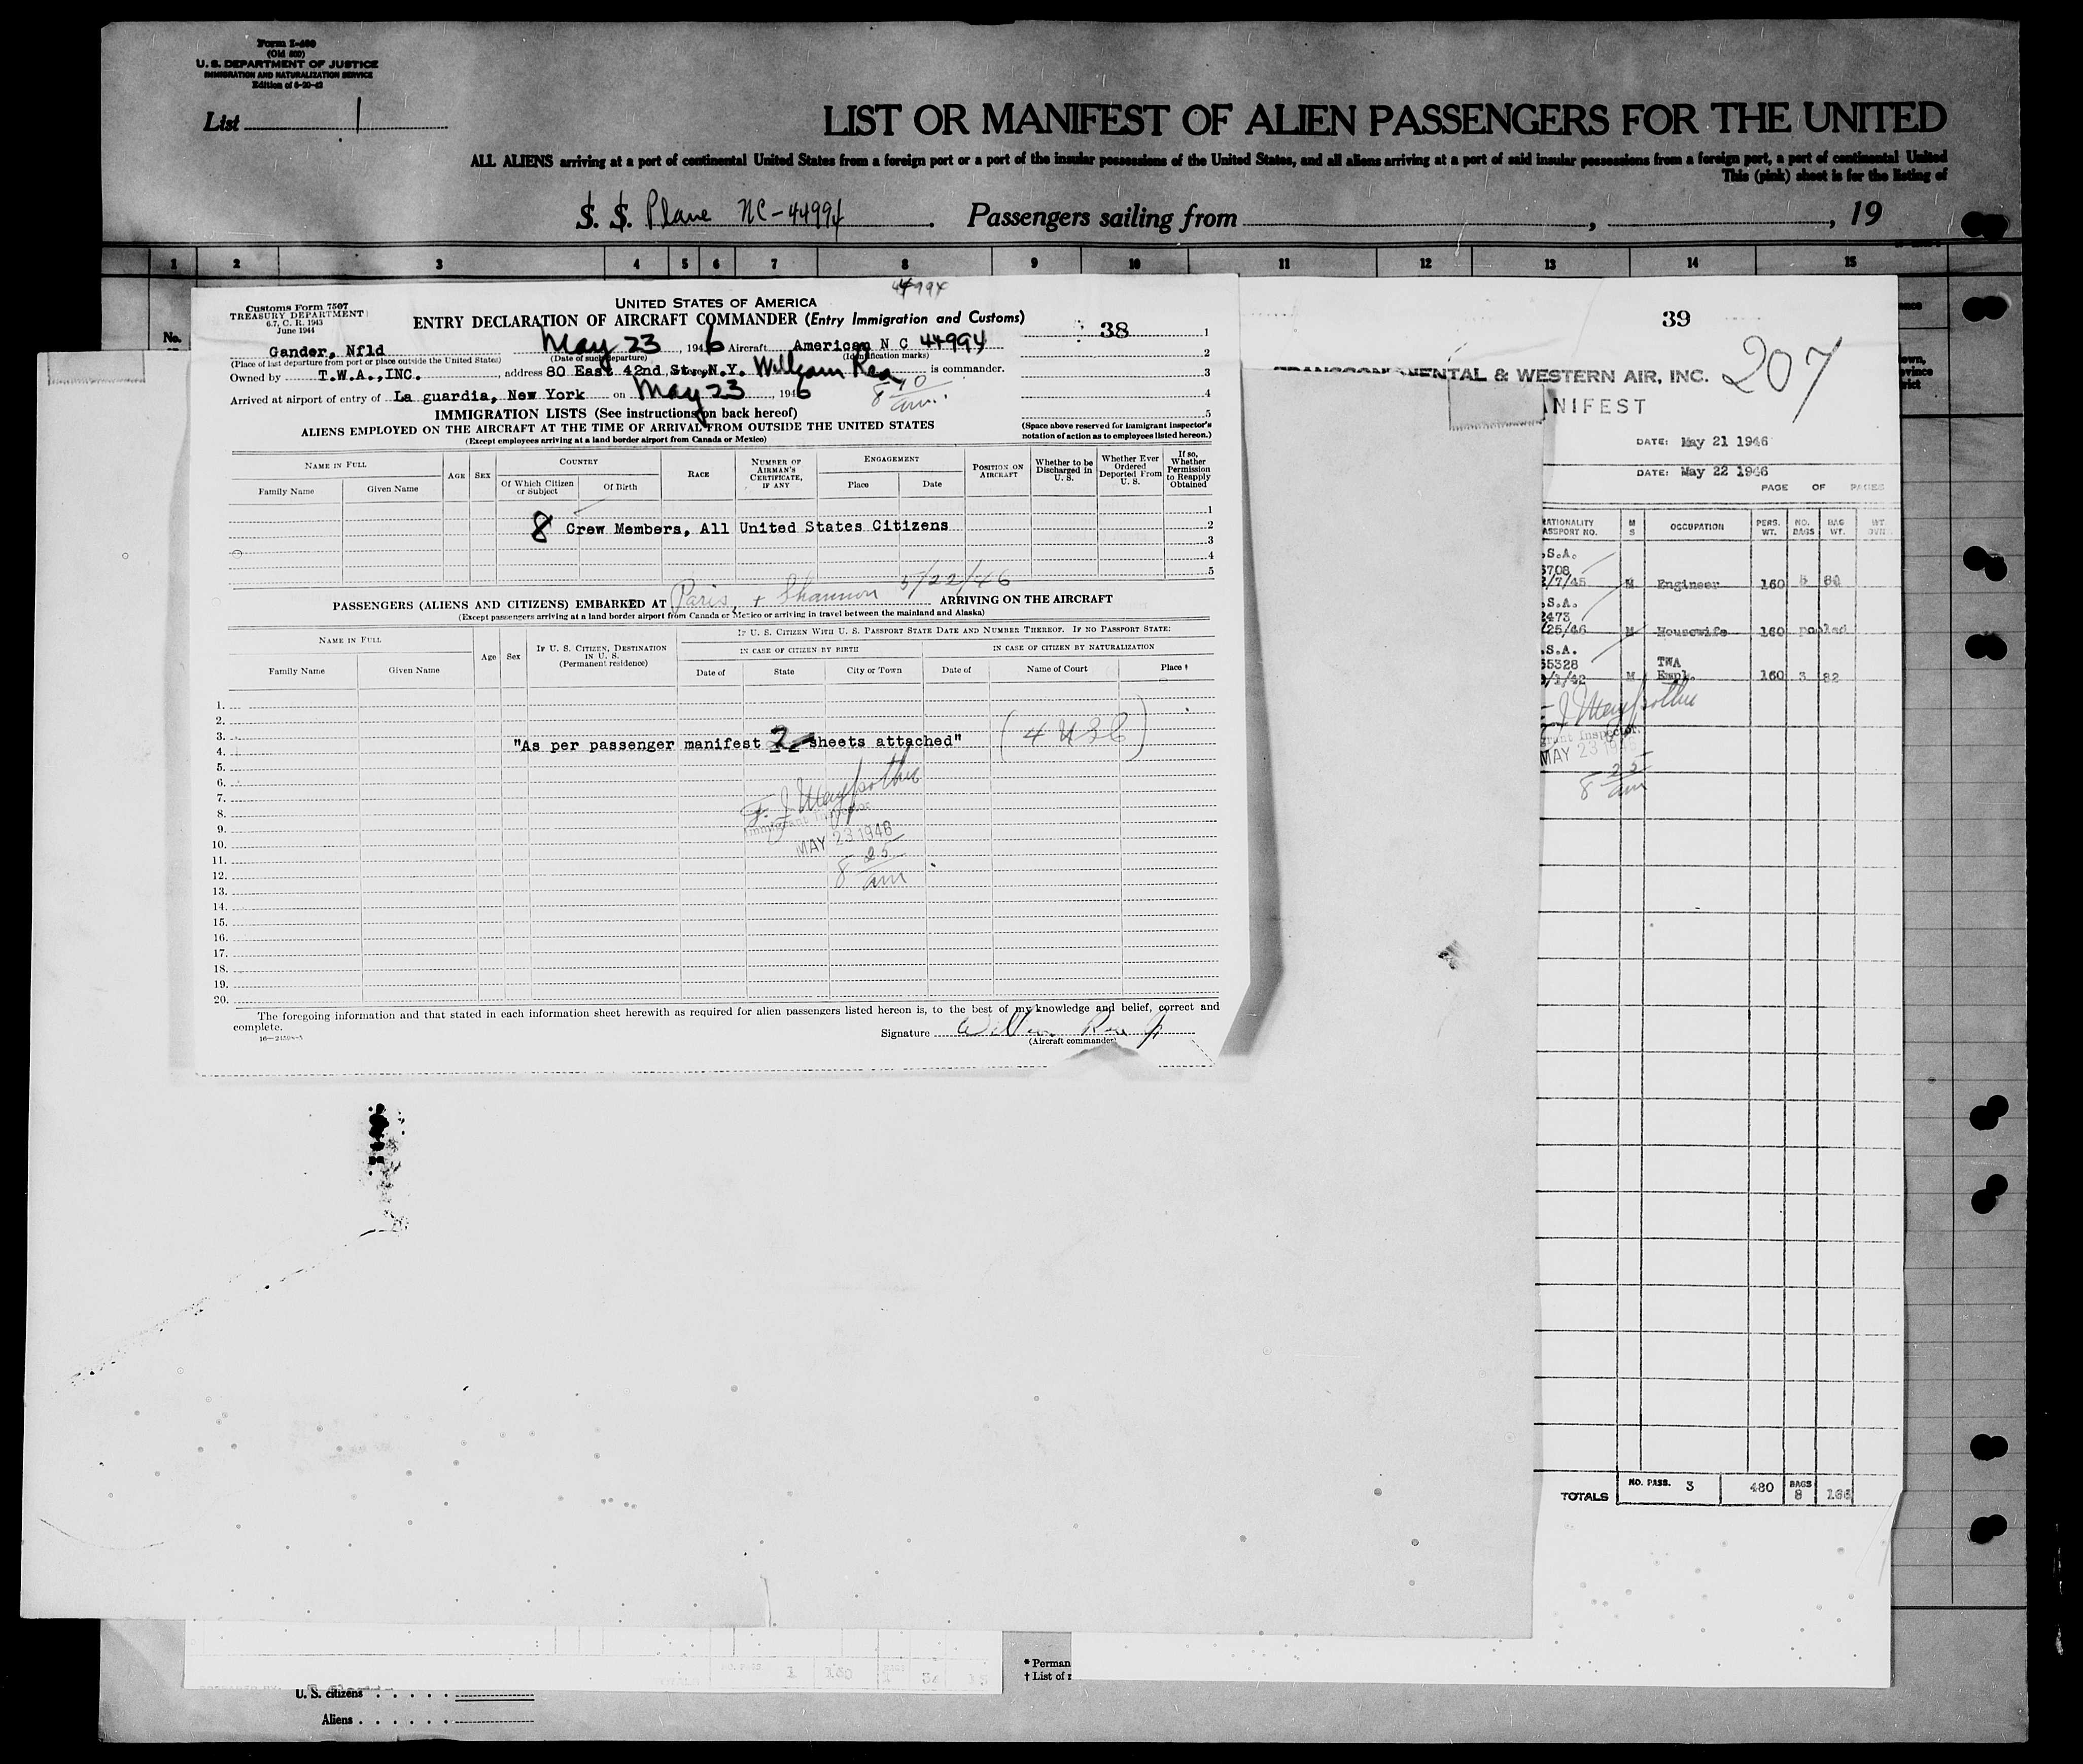 Form I-400
(Old 500)
U. S. DEPARTMENT OF JUSTICE
IMMIGRATION AND NATURALIZATION SERVICE
List 1
LIST OR MANIFEST OF ALIEN PASSENGERS FOR THE UNITED
ALL ALIENS arriving at a port of continental United States from a foreign port or a port of the insular possessions of the United States, and all aliens arriving at a port of said insular possessions from a foreign port, a port of continental United
This (pink) sheet is for the listing of
S. S. Plane NC-44994. Passengers sailing from , , 19
1 2 3 4 5 6 7 8 9 10 11 12 13 14 15
No.
44994
Customs Form 7507
TREASURY DEPARTMENT
6.7, C. R. 1943
June 1944
UNITED STATES OF AMERICA
ENTRY DECLARATION OF AIRCRAFT COMMANDER (Entry Immigration and Customs)
38
Gander, Nfld May 23, 1946 Aircraft American N C 44994
(Place of last departure from port or place outside the United States) (Date of such departure) (Identification marks)
Owned by T.W.A.,INC., address 80 East 42nd St., N.Y. William Rea is commander.
Arrived at airport of entry of La guardia, New York on May 23, 1946 8 40 am.
IMMIGRATION LISTS (See instructions on back hereof)
ALIENS EMPLOYED ON THE AIRCRAFT AT THE TIME OF ARRIVAL FROM OUTSIDE THE UNITED STATES
(Except employees arriving at a land border airport from Canada or Mexico)
1
2
3
4
5
(Space above reserved for immigrant inspector's
notation of action as to employees listed hereon.)
NAME IN FULL
Family Name Given Name
AGE
SEX
COUNTRY
Of Which Citizen or Subject
Of Birth
RACE
NUMBER OF AIRMAN'S CERTIFICATE, IF ANY
ENGAGEMENT
Place Date
POSITION ON AIRCRAFT
Whether to be Discharged in U. S.
Whether Ever Ordered Deported From U. S.
If so, Whether Permission to Reapply Obtained
8 Crew Members, All United States Citizens
1
2
3
4
5
PASSENGERS (ALIENS AND CITIZENS) EMBARKED AT Paris, + Shannon 5/22/46 ARRIVING ON THE AIRCRAFT
(Except passengers arriving at a land border airport from Canada or Mexico or arriving in travel between the mainland and Alaska)
NAME IN FULL
Family Name Given Name
Age
Sex
IF U. S. CITIZEN, DESTINATION IN U. S.
(Permanent residence)
IF U. S. CITIZEN WITH U. S. PASSPORT STATE DATE AND NUMBER THEREOF. IF NO PASSPORT STATE:
IN CASE OF CITIZEN BY BIRTH
IN CASE OF CITIZEN BY NATURALIZATION
Date of State City or Town Date of Name of Court Place
1.
2.
3.
4.
"As per passenger manifest 2 sheets attached" (4 USC)
5.
6.
7.
8.
9.
10.
11.
12.
13.
14.
15.
16.
17.
18.
19.
20.
Immigrant Inspector
MAY 23 1946
8 25 am
The foregoing information and that stated in each information sheet herewith as required for alien passengers listed hereon is, to the best of my knowledge and belief, correct and
complete.
Signature William Rea Jr
(Aircraft commander)
39
207
& WESTERN AIR, INC.
MANIFEST
DATE: May 21 1946
DATE: May 22 1946
PAGE OF PAGES
NATIONALITY
PASSPORT NO.
M S
OCCUPATION
PERS. WT.
NO. BAGS
BAG WT.
.S.A.
6708
2/7/45 M Engineer 160
.S.A.
2473
/25/46 M Housewife 160 pooled
.S.A.
65328 TWA
/1/42 M Empl. 160 3 82
MAY 23
8 25 am
TOTALS NO. PASS. 3 480 BAGS 8 166
* Perman
† List of r
U. S. citizens
Aliens